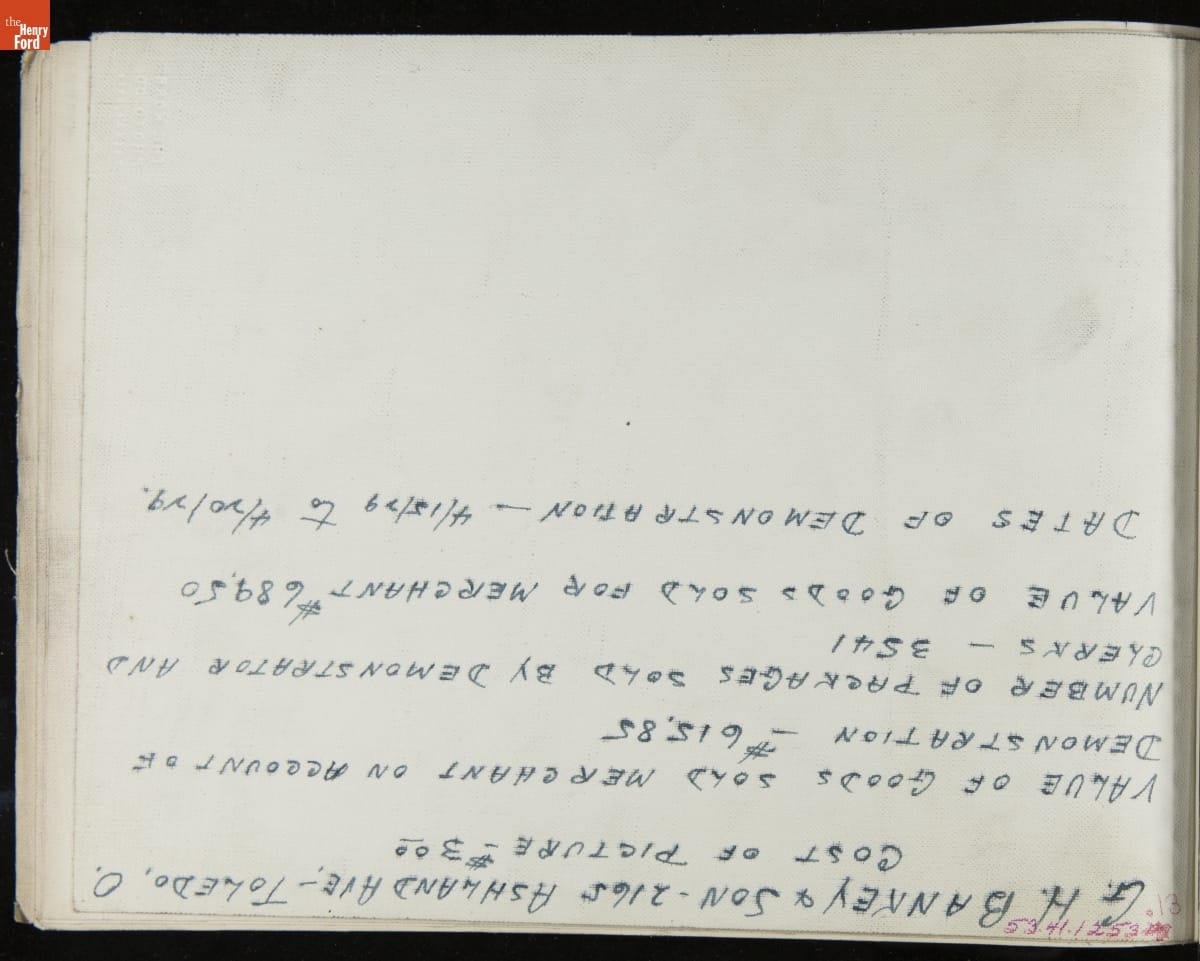 the
Henry
Ford
G. H. BANKEY & SON - 2165 ASHLAND AVE, - TOLEDO, O.
COST OF PICTURE - $3.00
VALUE OF GOODS SOLD MERCHANT ON ACCOUNT OF
DEMONSTRATION - $615.85
NUMBER OF PACKAGES SOLD BY DEMONSTRATOR AND
CLERKS - 3541
VALUE OF GOODS SOLD FOR MERCHANT $689.50
DATES OF DEMONSTRATION - 4/15/29 to 4/20/29.